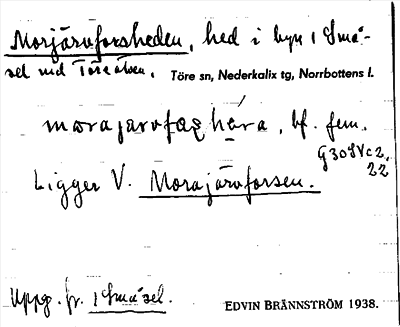 Morjärvforsheden, hed i byn 1 Små-
sel vid Töre älven. Töre sn, Nederkalix tg, Norrbottens l.
bf. fem.
G30SVc2,
22
Ligger V. Morajärvforsen.
Uppg. fr. 1 Småsel. EDVIN BRÄNNSTRÖM 1938.